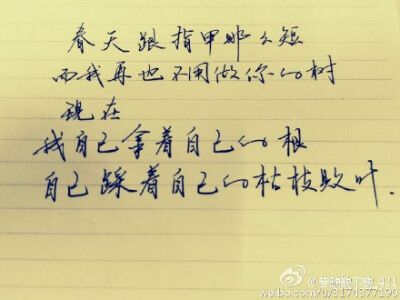 春天跟指甲那么短
而我再也不用做你的树
现在
我自己拿着自己的根
自己踩着自己的枯枝败叶.
weibo.com/u/3174377190